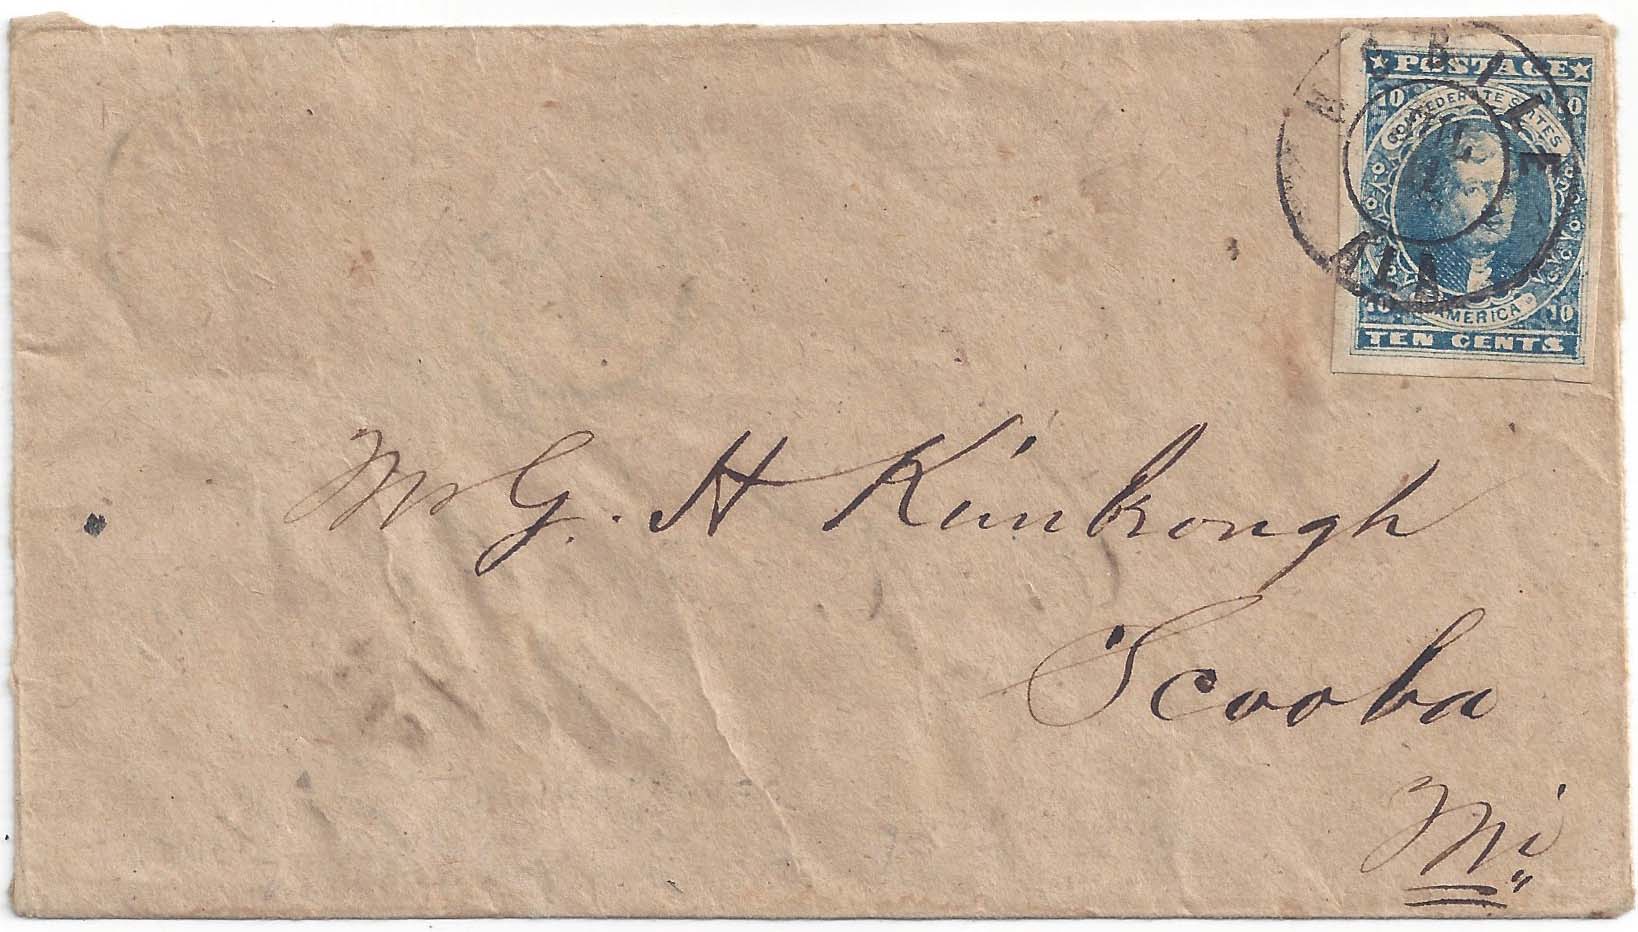 MOBILE
★ POSTAGE ★
10 10
CONFEDERATE STATES
ALA
OF AMERICA
10 10
TEN CENTS
Mr G. H Kimbrough
Scooba
Mi